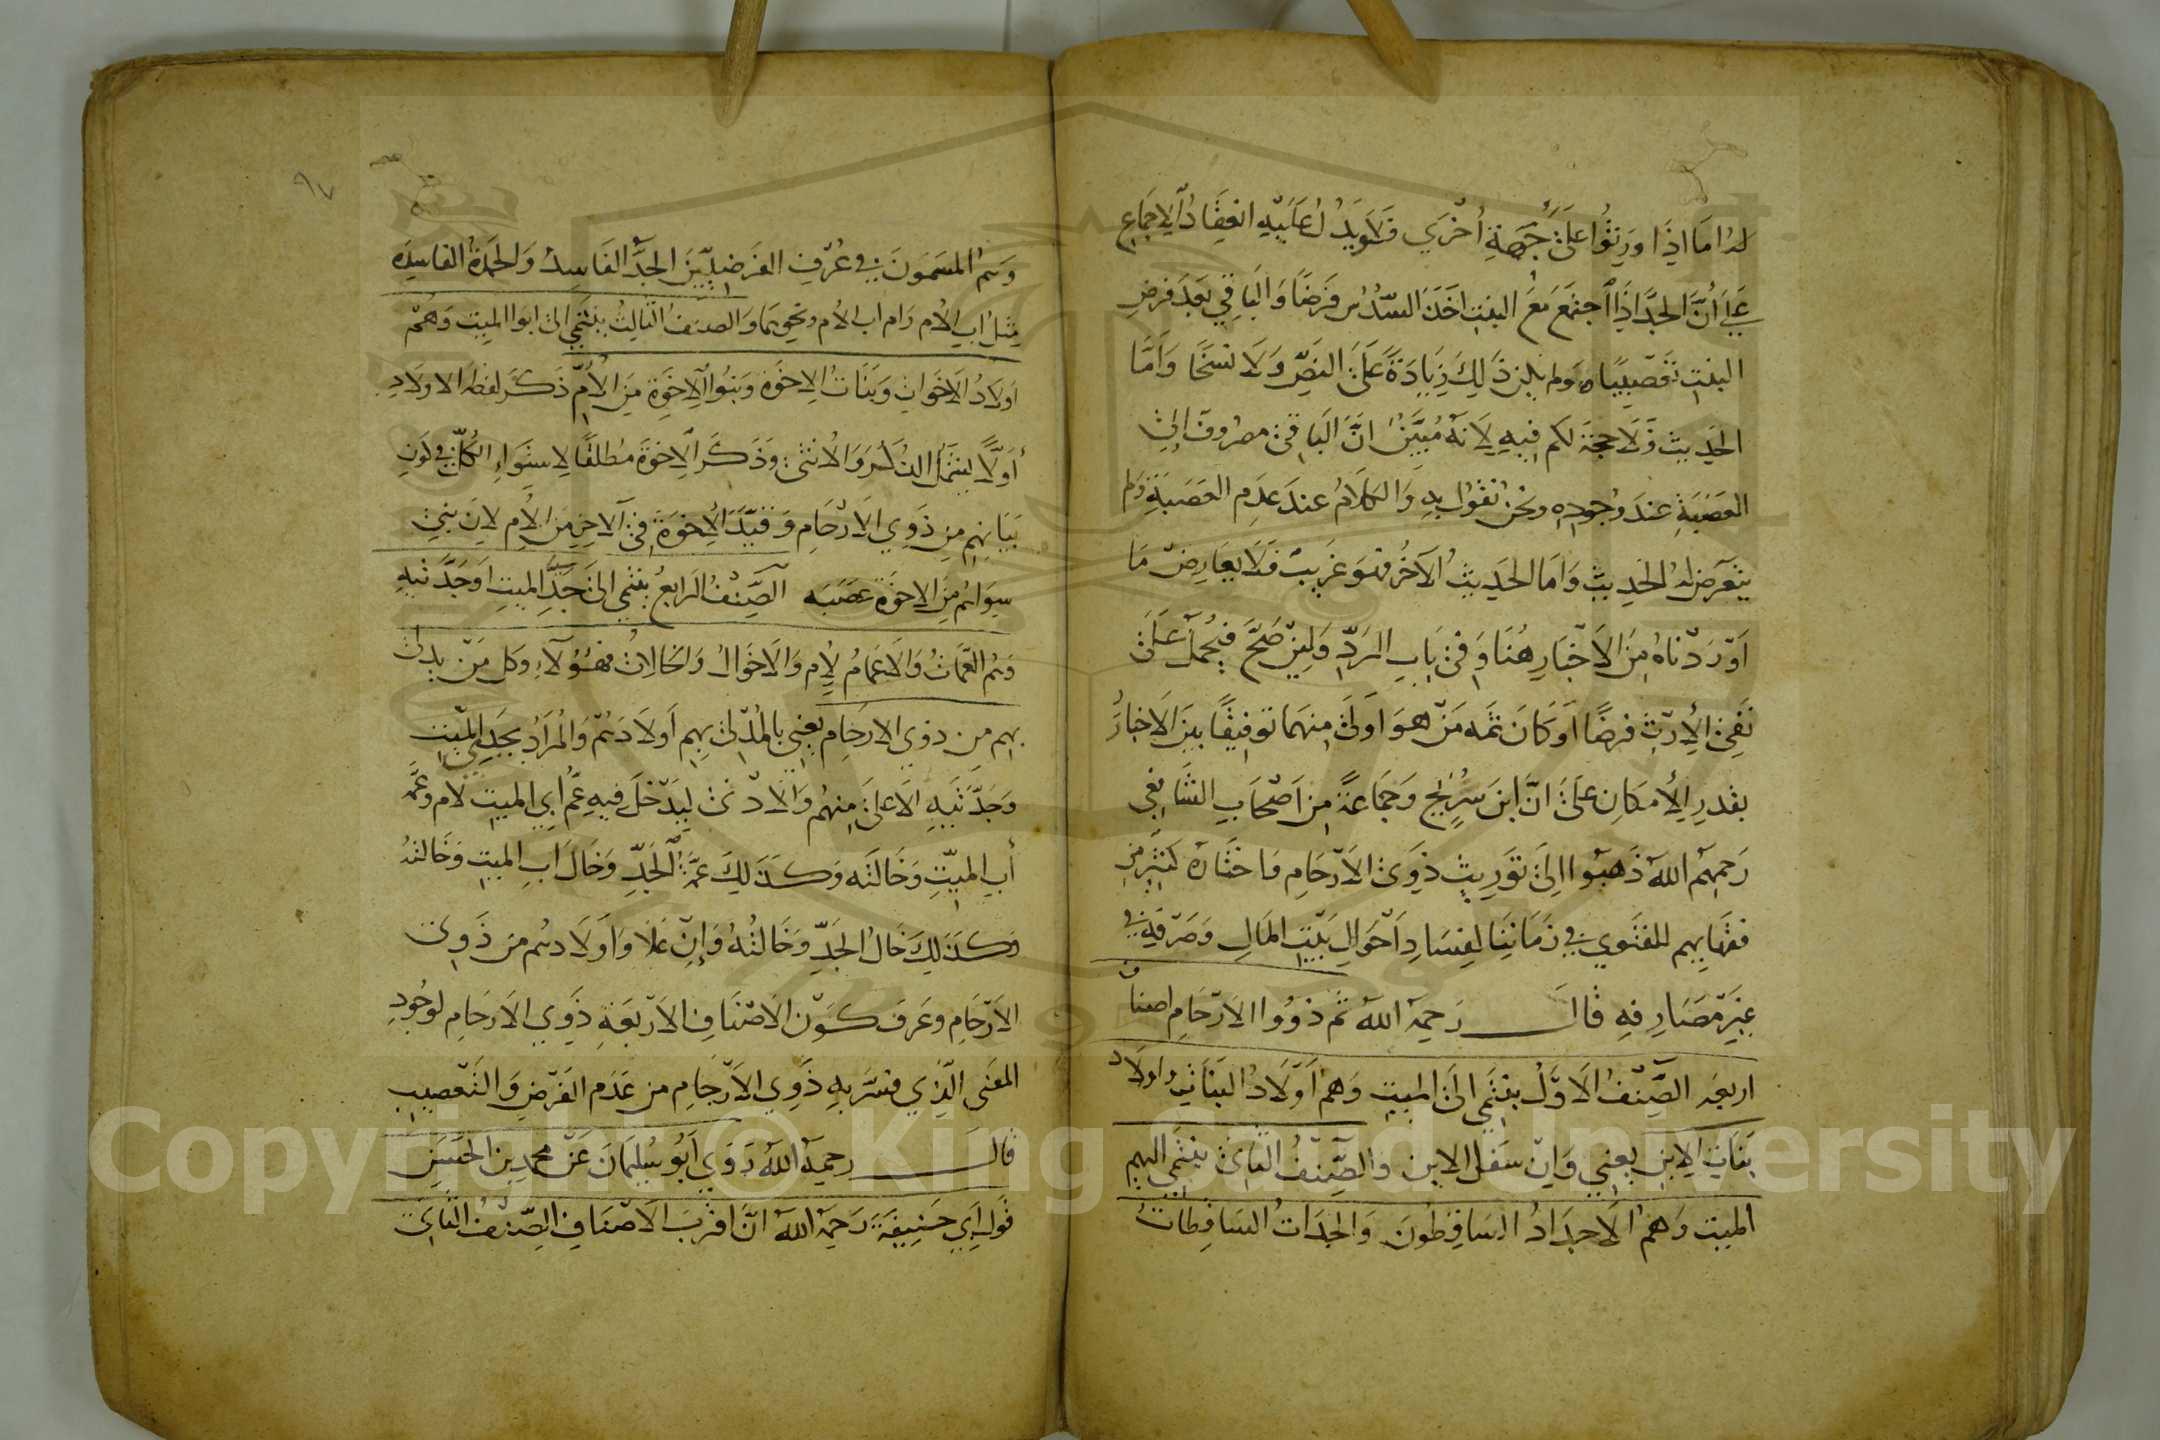 له اما اذا ورثوا على جهة أخرى فلا ويدل عليه انعقاد الاجماع
على أن الجد اذا اجتمع مع البنت اخذ السدس فرضا والباقي بعد فرض
البنت تعصيبا ولم يكن ذلك زيادة على النص ولا نسخا وأما
الحديث فلا حجة لكم فيه لانه مبين ان الباقي مصروف الى
العصبة عند وجوده ونحن نقول به والكلام عند عدم العصبة ولم
يتعرض له الحديث واما الحديث الآخر فهو غريب فلا يعارض ما
اوردناه من الاخبار هنا وفي باب الرد ولئن صح فيحمل على
نفي الإرث فرضا او كان ثمه من هو اولى منهما توفيقا بين الاخبار
بقدر الإمكان على ان ابن سريج وجماعة من اصحاب الشافعي
رحمهم الله ذهبوا الى توريث ذوي الارحام واختاره كثير من
فقهايهم للفتوي في زماننا لفساد احوال بيت المال وصرفه في
غير مصارفه قال رحمه الله ثم ذووا الارحام اصناف
اربعه الصنف الاول ينتمي الى الميت وهم أولاد البنات واولاد
بنات الابن يعني وان سفل الابن والصنف الثاني ينتمي اليهم
الميت وهم الاجداد الساقطون والجدات الساقطات
٩٧
وهم المسمون في عرف الفرضيين الجد الفاسد والجدة الفاسدة
مثل اب الام وام اب الام ونحوهما والصنف الثالث ينتمي الى ابوا الميت وهم
اولاد الاخوات وبنات الاخوة وبنوا الاخوة من الأم ذكر لفظه الاولاد
أولا ليشمل الذكر والانثى وذكر الاخوة مطلقا لاستواء الكل في كون
بناتهم من ذوي الارحام وقيد الاخوة في الآخر من الام لان بني
سواهم من الاخوة عصبه الصنف الرابع ينتمي الى جد الميت او جدتيه
وهم العمات والاعمام لام والاخوال والخالات فهؤلاء وكل من يدلى
بهم من ذوي الارحام يعني بالمدلى بهم اولادهم والمراد بجدي الميت
وجدتيه الاعلى منهم والادنى ليدخل فيه عم أبي الميت لام وعمة
أب الميت وخالته وكذلك عمة الجد وخال اب الميت وخالته
وكذلك خال الجد وخالته وإن علا واولادهم من ذوي
الارحام وعرف كون الاصناف الاربعة ذوي الارحام لوجود
المعنى الذي فسر به ذوي الارحام من عدم الفرض والتعصيب
قال رحمه الله روي أبو سليمان عن محمد بن الحسن
قول أبي حنيفة رحمه الله ان اقرب الاصناف الصنف الثاني
Copyright © King Saud University